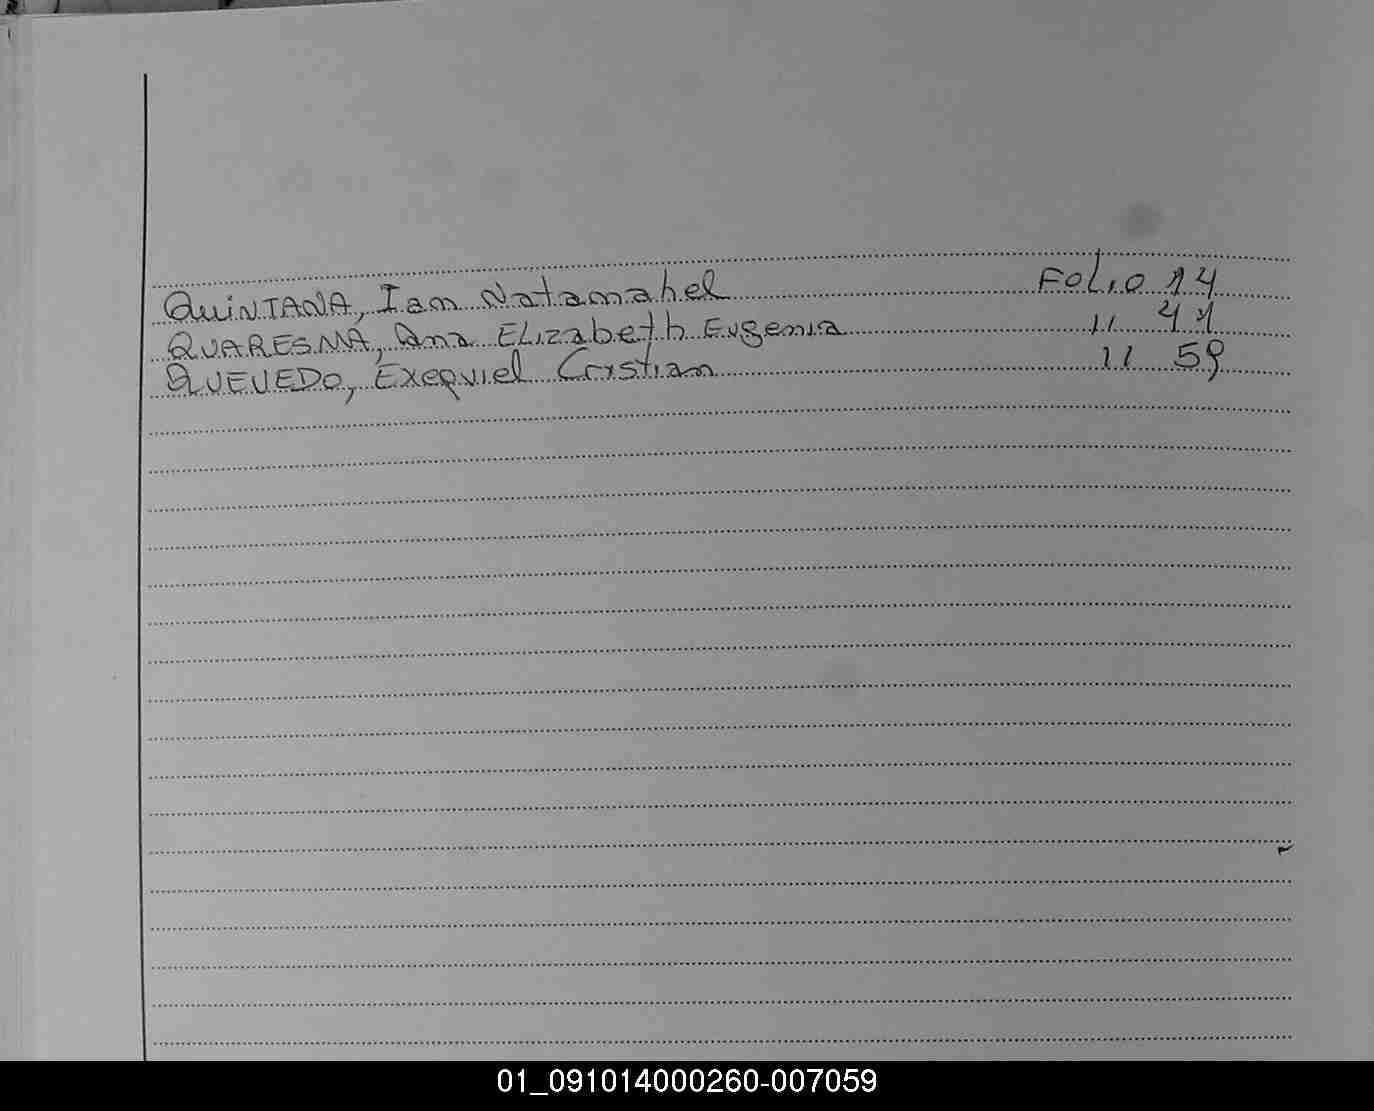 QUINTANA, Iam Natamahel Folio 14
QUARESMA, Ana ELizabeth Eugenia 11 41
QUEVEDO, Exequiel Cristian 11 59
01_091014000260-007059